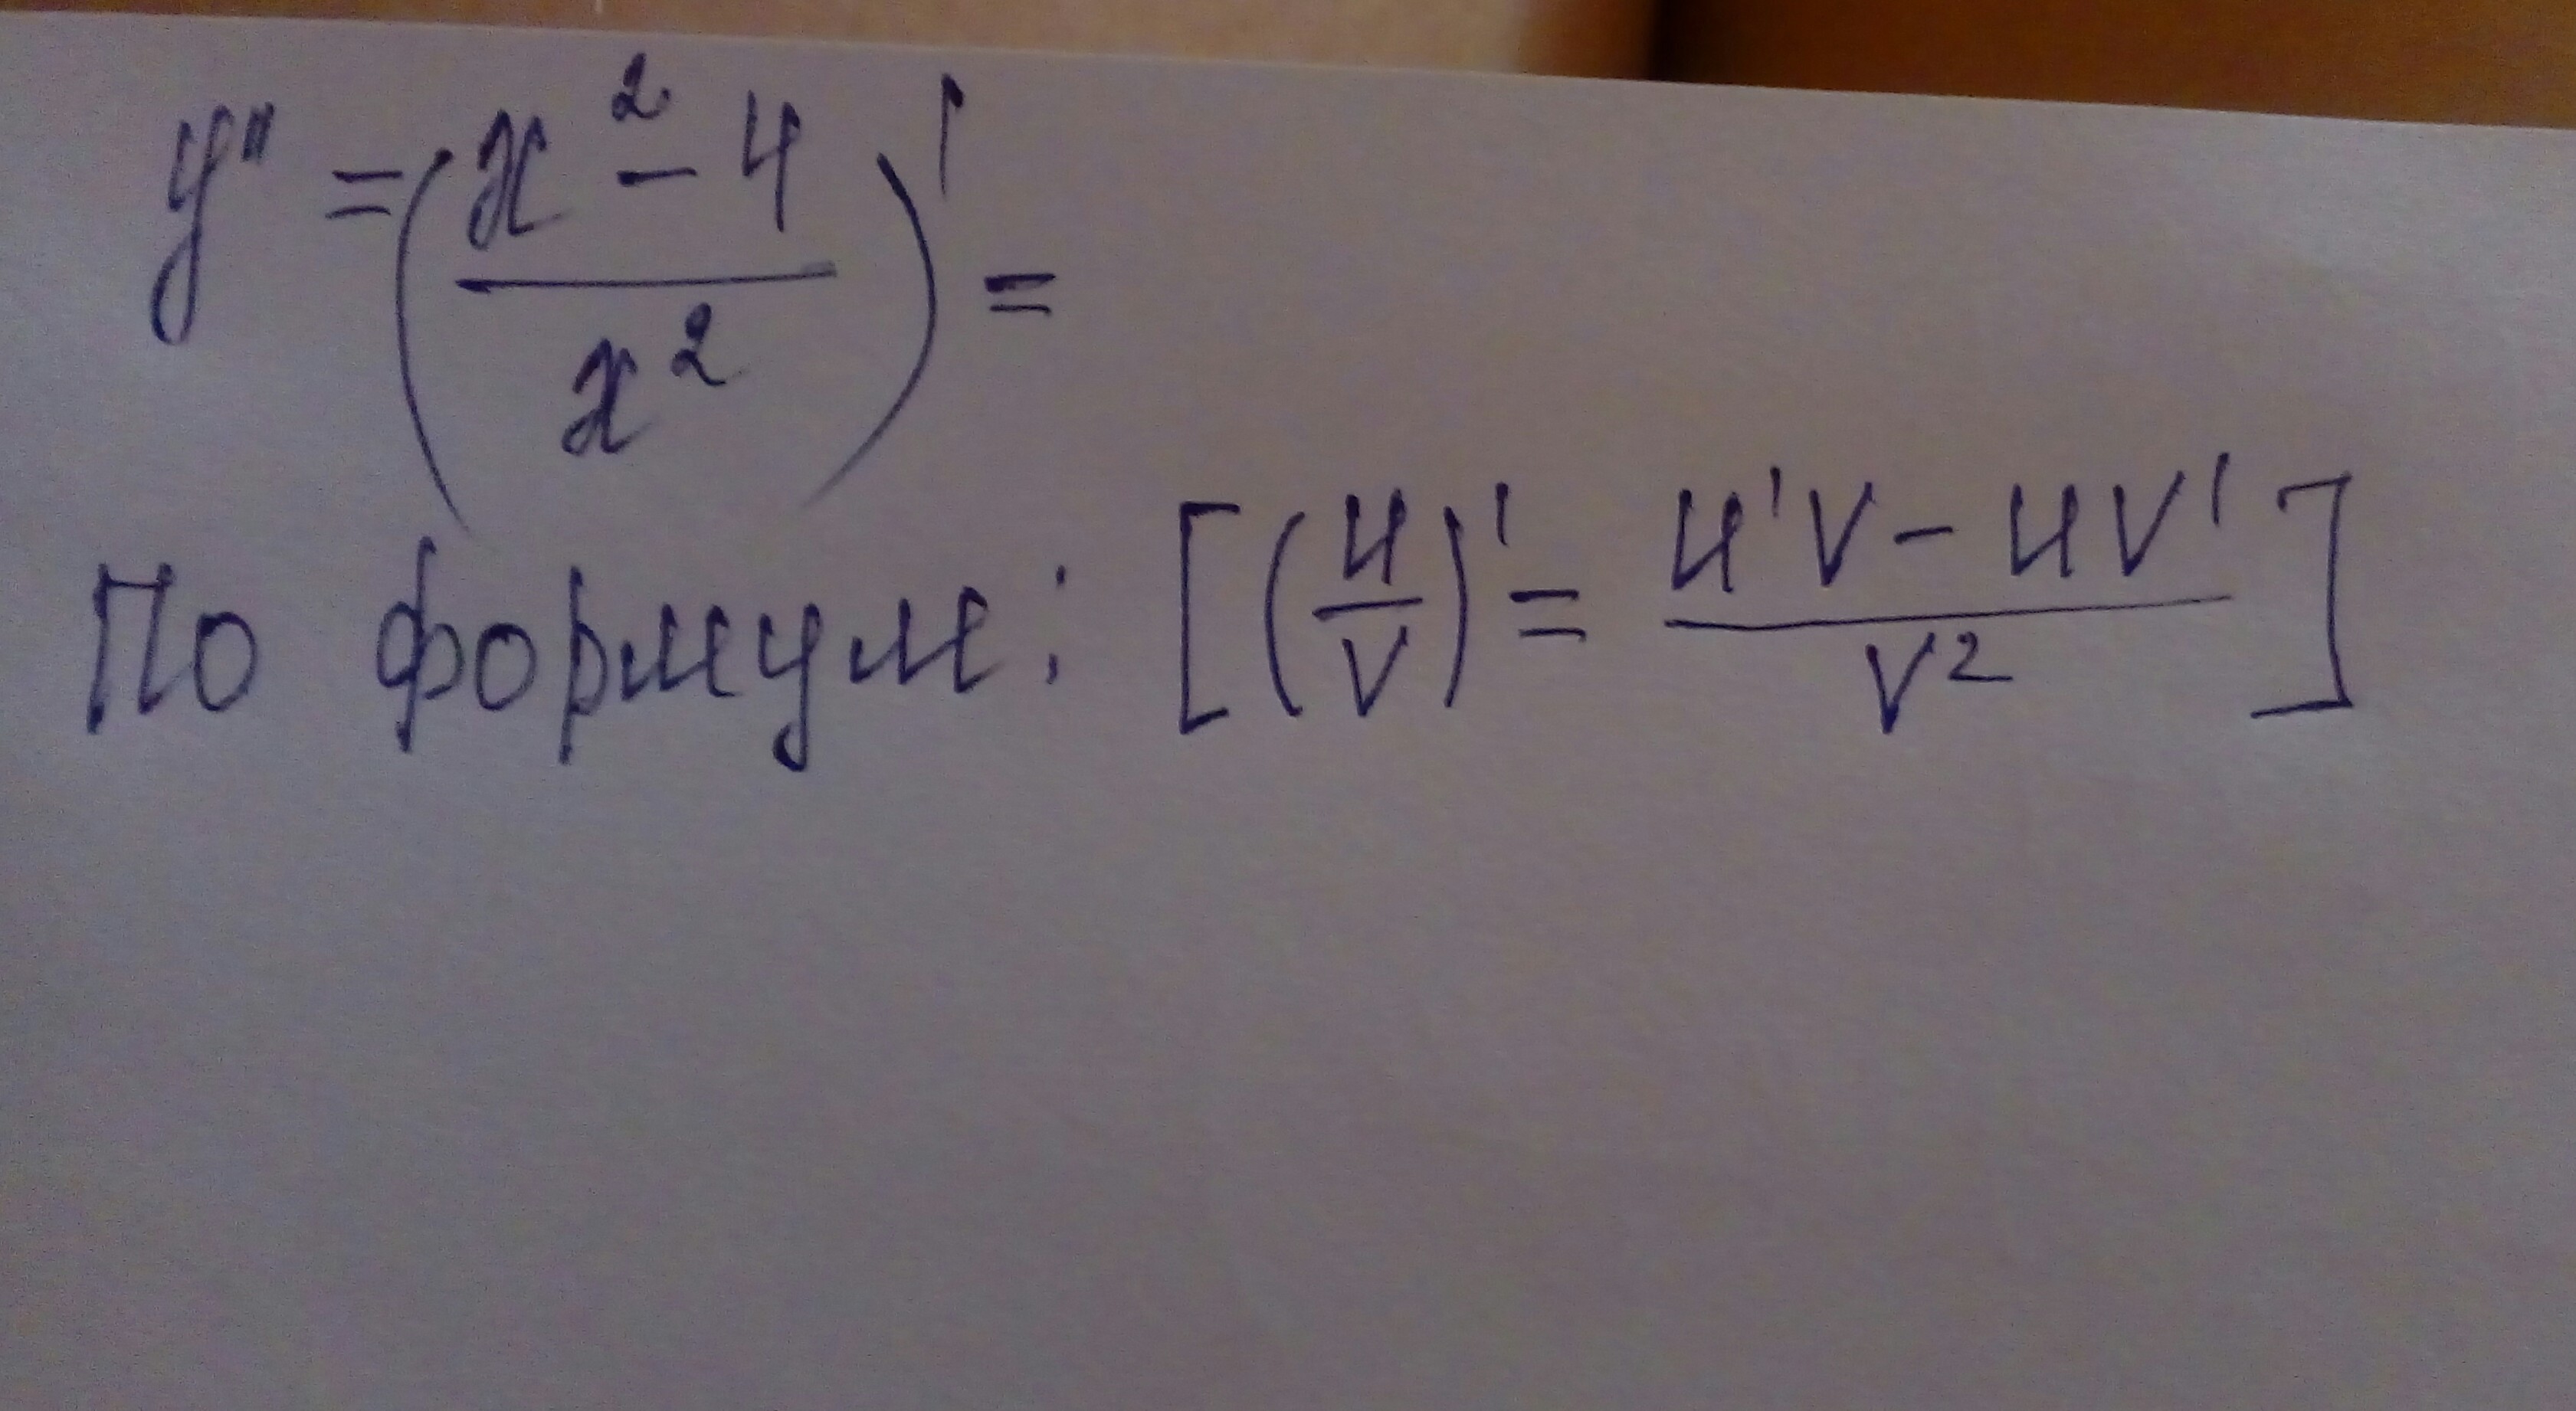 y'' = (x² - 4 / x²)' =
По формуле: [(u/v)' = u'v - uv' / v²]